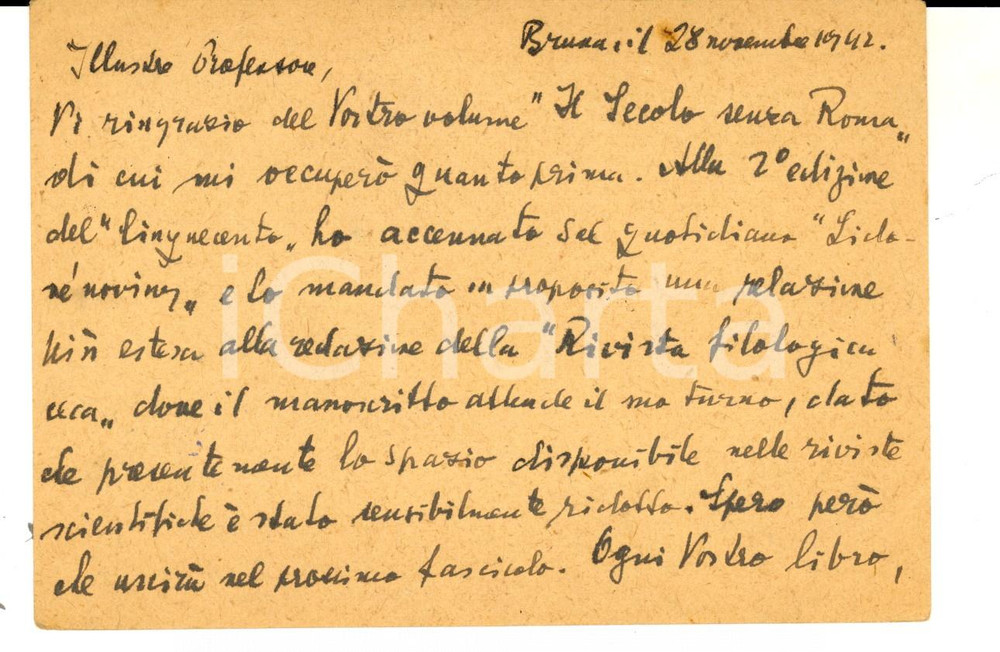 Bruna, il 28 novembre 1942.
Illustre Professore,
Vi ringrazio del Vostro volume "Il Secolo senza Roma„
di cui mi occuperò quanto prima. Alla 2° edizione
del "Cinquecento„ ho accennato sul quotidiano "Lido-
vé noviny„ e ho mandato in proposito una relazione
più estesa alla redazione della "Rivista filologica
ceca„ dove il manoscritto attende il suo turno, dato
che presentemente lo spazio disponibile nelle riviste
scientifiche è stato sensibilmente ridotto. Spero però
che uscirà nel prossimo fascicolo. Ogni Vostro libro,
iCharta